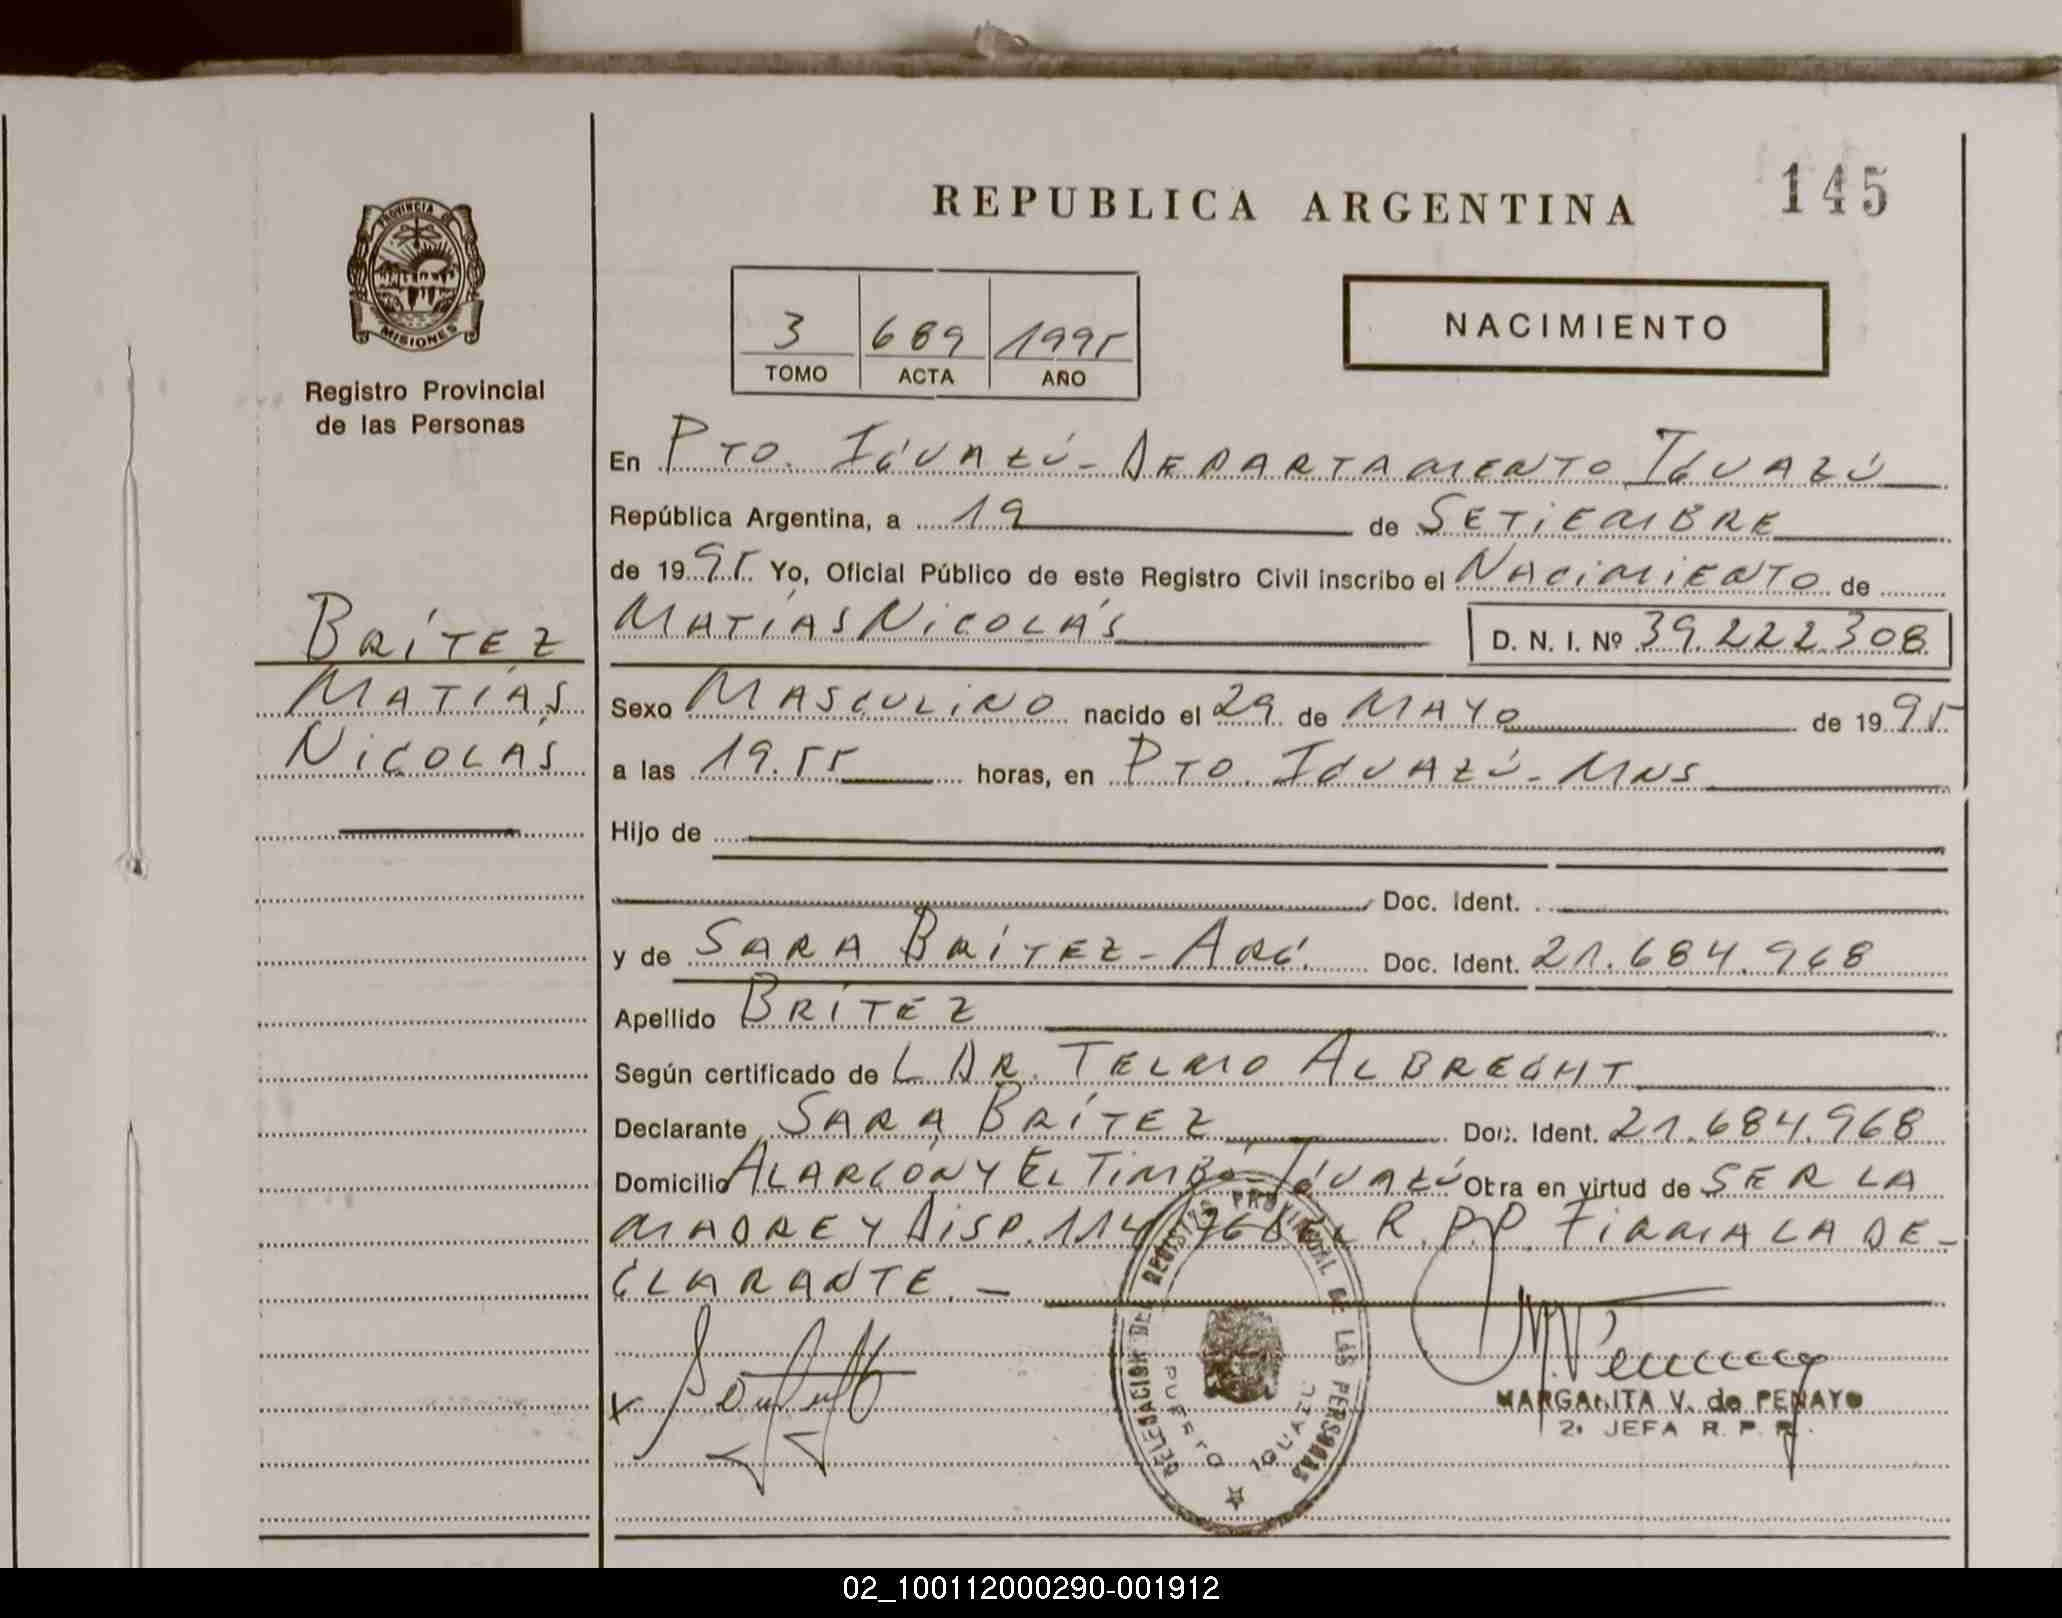 REPUBLICA ARGENTINA
145
PROVINCIA DE
MISIONES
Registro Provincial
de las Personas
3 689 1995
TOMO ACTA AÑO
NACIMIENTO
En PTO. IGUAZÚ - DEPARTAMENTO IGUAZÚ
República Argentina, a 19 de SETIEMBRE
de 1995 Yo, Oficial Público de este Registro Civil inscribo el NACIMIENTO de
BRÍTEZ
MATÍAS
NICOLÁS
MATÍAS NICOLÁS D. N. I. Nº 39.222.308
Sexo MASCULINO nacido el 29 de MAYO de 1995
a las 19.55 horas, en PTO. IGUAZÚ - MNS
Hijo de
Doc. Ident.
y de SARA BRÍTEZ - ARG. Doc. Ident. 21.684.968
Apellido BRÍTEZ
Según certificado de L DR. TELMO ALBRECHT
Declarante SARA BRÍTEZ Doc. Ident. 21.684.968
Domicilio ALARCÓN Y EL TIMBÓ - IGUAZÚ Otra en virtud de SER LA
MADRE Y DISP. 114 R. P.P. FIRMA LA DE-
CLARANTE. -
x
DELEGACION DEL REGISTRO PROVINCIAL DE LAS PERSONAS
PUERTO IGUAZU
MARGARITA V. de PENAYO
2ª JEFA R. P. P.
02_100112000290-001912